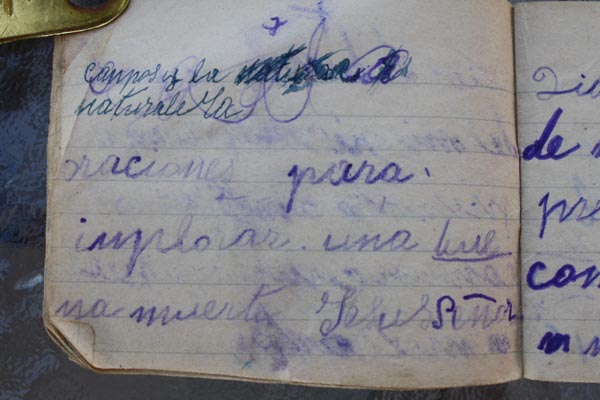 7
campos y la
naturaleza
oraciones para.
implorar. una bue
na muerte Jesus Señor
de
pre
con